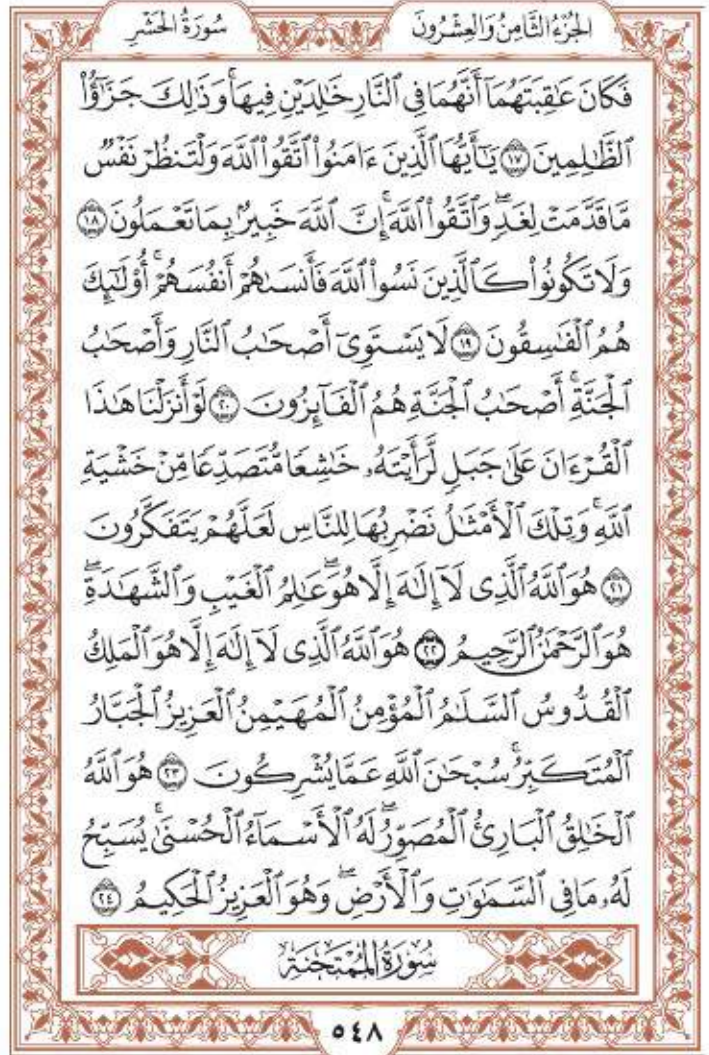 الجُزْءُ الثَّامِنُ وَالعِشْرُونَ سُورَةُ الحَشْرِ
فَكَانَ عَٰقِبَتَهُمَآ أَنَّهُمَا فِي ٱلنَّارِ خَٰلِدَيۡنِ فِيهَاۚ وَذَٰلِكَ جَزَٰٓؤُاْ
ٱلظَّٰلِمِينَ ١٧ يَٰٓأَيُّهَا ٱلَّذِينَ ءَامَنُواْ ٱتَّقُواْ ٱللَّهَ وَلۡتَنظُرۡ نَفۡسٞ
مَّا قَدَّمَتۡ لِغَدٖۖ وَٱتَّقُواْ ٱللَّهَۚ إِنَّ ٱللَّهَ خَبِيرُۢ بِمَا تَعۡمَلُونَ ١٨
وَلَا تَكُونُواْ كَٱلَّذِينَ نَسُواْ ٱللَّهَ فَأَنسَىٰهُمۡ أَنفُسَهُمۡۚ أُوْلَٰٓئِكَ
هُمُ ٱلۡفَٰسِقُونَ ١٩ لَا يَسۡتَوِيٓ أَصۡحَٰبُ ٱلنَّارِ وَأَصۡحَٰبُ
ٱلۡجَنَّةِۚ أَصۡحَٰبُ ٱلۡجَنَّةِ هُمُ ٱلۡفَآئِزُونَ ٢٠ لَوۡ أَنزَلۡنَا هَٰذَا
ٱلۡقُرۡءَانَ عَلَىٰ جَبَلٖ لَّرَأَيۡتَهُۥ خَٰشِعٗا مُّتَصَدِّعٗا مِّنۡ خَشۡيَةِ
ٱللَّهِۚ وَتِلۡكَ ٱلۡأَمۡثَٰلُ نَضۡرِبُهَا لِلنَّاسِ لَعَلَّهُمۡ يَتَفَكَّرُونَ
٢١ هُوَ ٱللَّهُ ٱلَّذِي لَآ إِلَٰهَ إِلَّا هُوَۖ عَٰلِمُ ٱلۡغَيۡبِ وَٱلشَّهَٰدَةِۖ
هُوَ ٱلرَّحۡمَٰنُ ٱلرَّحِيمُ ٢٢ هُوَ ٱللَّهُ ٱلَّذِي لَآ إِلَٰهَ إِلَّا هُوَ ٱلۡمَلِكُ
ٱلۡقُدُّوسُ ٱلسَّلَٰمُ ٱلۡمُؤۡمِنُ ٱلۡمُهَيۡمِنُ ٱلۡعَزِيزُ ٱلۡجَبَّارُ
ٱلۡمُتَكَبِّرُۚ سُبۡحَٰنَ ٱللَّهِ عَمَّا يُشۡرِكُونَ ٢٣ هُوَ ٱللَّهُ
ٱلۡخَٰلِقُ ٱلۡبَارِئُ ٱلۡمُصَوِّرُۖ لَهُ ٱلۡأَسۡمَآءُ ٱلۡحُسۡنَىٰۚ يُسَبِّحُ
لَهُۥ مَا فِي ٱلسَّمَٰوَٰتِ وَٱلۡأَرۡضِۖ وَهُوَ ٱلۡعَزِيزُ ٱلۡحَكِيمُ ٢٤
سُورَةُ المُمْتَحنَةِ
٥٤٨